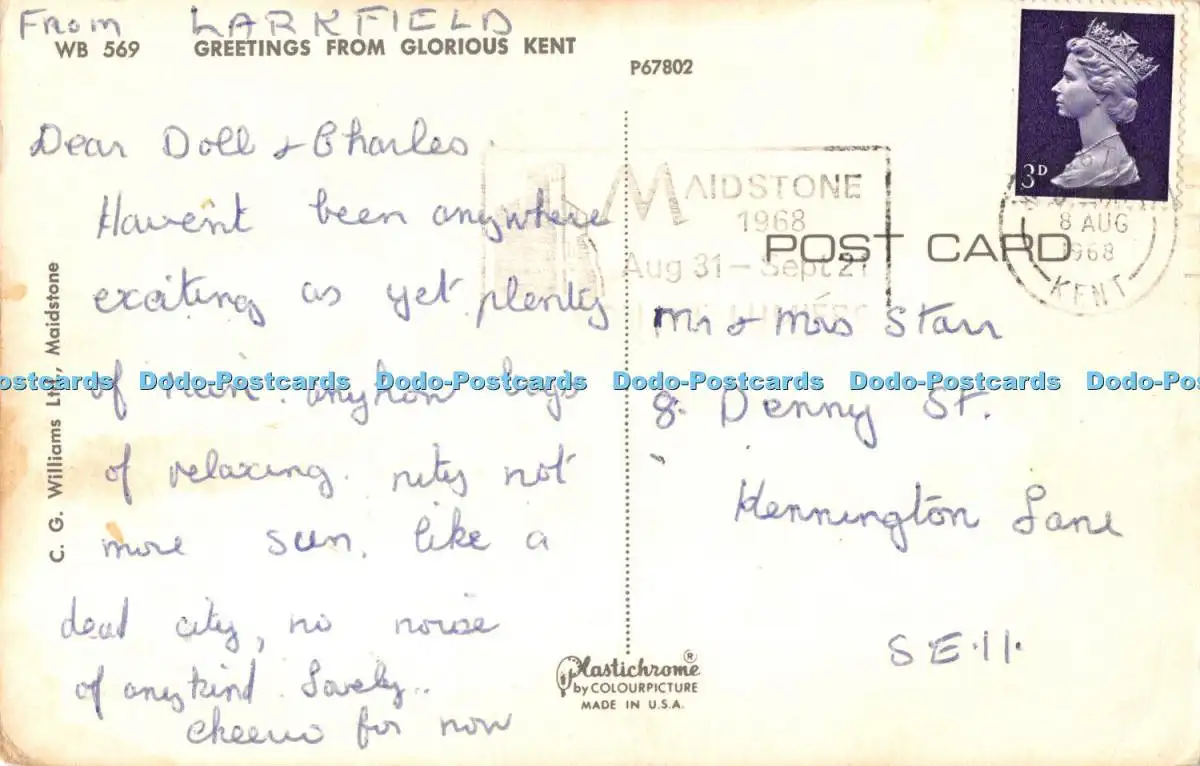 From LARKFIELD
WB 569 GREETINGS FROM GLORIOUS KENT
P67802
Dear Doll & Charles.
Havent been anywhere
exciting as yet plenty
of rain. anyhow bags
of relaxing. pity not
more sun. like a
dead city, no noise
of anykind. Lovely..
cheerio for now
C. G. Williams Ltd., Maidstone
3D
MAIDSTONE
1968
Aug 31 – Sept 21
8 AUG
1968
KENT
POST CARD
Mr & Mrs Starr
8. Denny St.
Kennington Lane
SE.11.
Plastichrome®
by COLOURPICTURE
MADE IN U.S.A.
Dodo-Postcards Dodo-Postcards Dodo-Postcards Dodo-Postcards Dodo-Postcards